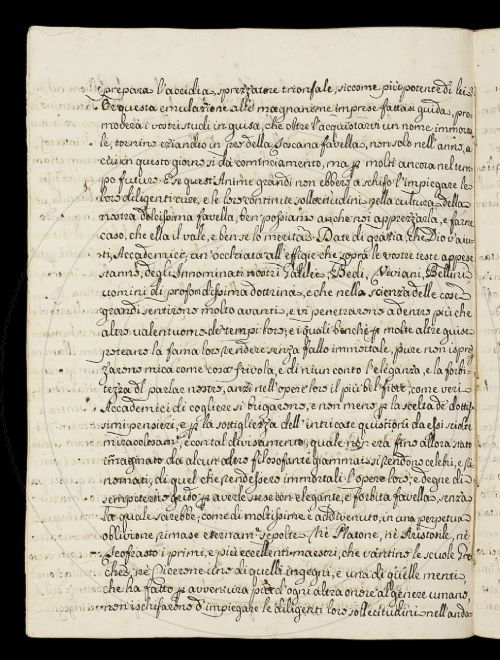 prepara l'accidia, sprezzatore trionfale, siccome più potente di lei.
E questa emulazione alle magnanime imprese fattasi guida, pro-
moderà i vostri studi in guisa, che oltre l'acquistarvi un nome immorta-
le, tornino eziandio in pro della Toscana favella, non solo nell'anno, a
cui in questo giorno si dà cominciamento, ma p molti ancora nel tem-
po futuro. E se quest'Anime grandi non ebbero a schifo l'impiegare le
loro diligenti cure, e le loro continue sollecitudini nella cultura della
nostra dolcissima favella, ben possiamo anche noi apprezzarla, e farne
caso, che ella il vale, e ben se lo merita. Date di grazia, che Dio v'aiu-
ti, Accademici, un'occhiata all'effigie che sopra le vostre teste appese
stanno, degli Innominati nostri Galilei, Redi, Viviani, Bellini
uomini di profondissima dottrina, e che nella scienza delle cose
grandi sentirono molto avanti, e vi penetrarono a dentro più che
altro valentuomo de' tempi loro, e i quali benchè p molte altre guise
poteano la fama loro rendere senza fallo immortale, pure non isprez-
zarono mica come cosa frivola, e di niun conto l'eleganza, e la forbi-
tezza del parlar nostro, anzi nell'opere loro il più bel fiore, come veri
Accademici di cogliere si brigarono, e non meno p la scelta de' dottis-
simi pensieri, e p la sottigliezza dell'intricate quistioni da essi sciolte
miracolosam.e, e con tal divisamento, quale non era fino allora stato
immaginato da alcun altro filosofante giammai si rendono celebri, e
nomati, di quel che rendessero immortali l'opere loro, e degne di
sempiterno grido p averle stese con elegante, e forbita favella, senza
la quale sarebbe, come di moltissime è addivenuto, in una perpetua
oblivione rimase eternam.e sepolte. Nè Platone, nè Aristotile, nè
Teofrasto i primi, e più eccellenti maestri, che vantino le scuole Gre-
che, nè Cicerone uno di quelli ingegni, e una di quelle menti
che ha fatto p avventura più d'ogni altra onore al genere umano,
non ischifarono d'impiegare le diligenti loro sollecitudini nell'anda-